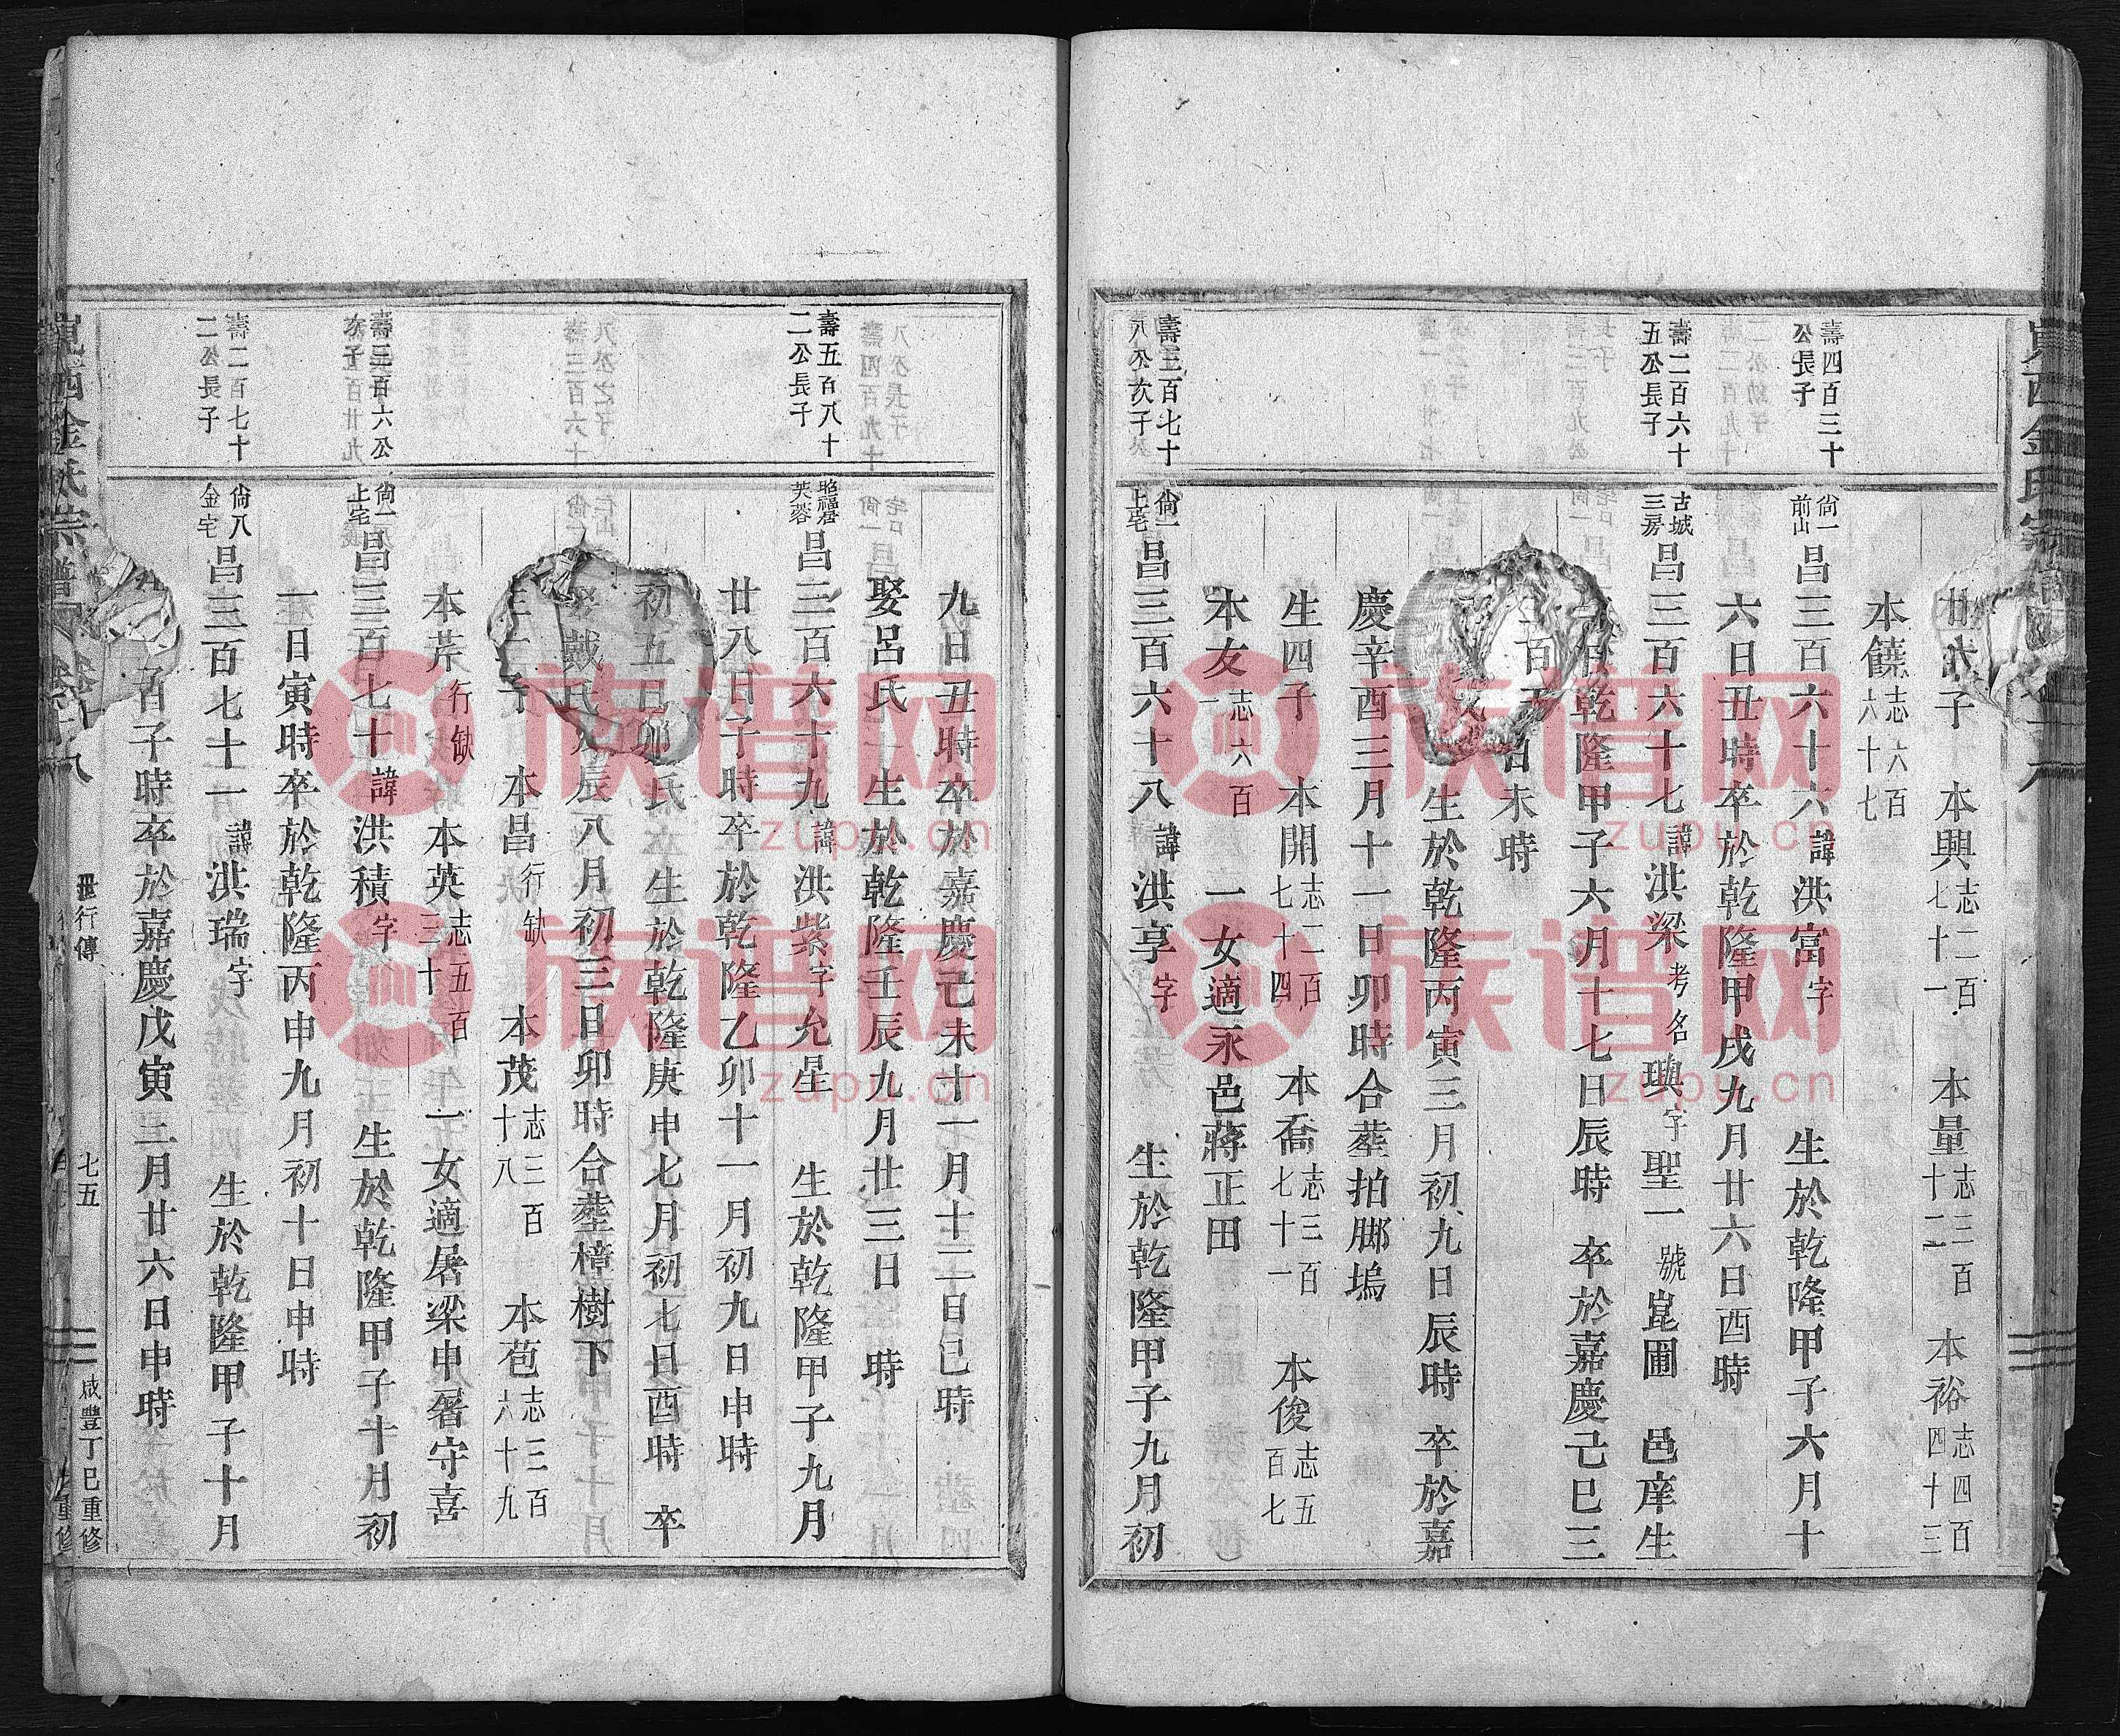 壽四百三十
公長子
壽二百六十
五公長子
壽三百七十
八公次子
子 本興志二百七十一 本量志三百十二 本裕志四百四十三
本饒志六百六十七
尙一前山 昌三百六十六諱洪富字 生於乾隆甲子六月十
六日丑時卒於乾隆甲戌九月廿六日酉時
古城三房 昌三百六十七諱洪梁考名璵字聖一號崑圃 邑庠生
乾隆甲子六月十七日辰時 卒於嘉慶己巳三
日未時
生於乾隆丙寅三月初九日辰時 卒於嘉
慶辛酉三月十一日卯時合塟拍腳塢
生四子 本開志二百七十四 本喬志三百七十一 本俊志五百七
本友志六百一 一女適永邑蔣正田
尙一上宅 昌三百六十八諱洪享字 生於乾隆甲子九月初
壽五百八十
二公長子
壽三百六公
次子
壽二百七十
二公長子
九日丑時卒於嘉慶己未十一月十二日巳時
娶呂氏 生於乾隆壬辰九月廿三日 時
昭福居芙蓉 昌三百六十九諱洪紫字允星 生於乾隆甲子九月
廿八日子時卒於乾隆乙卯十一月初九日申時
氏 生於乾隆庚申七月初七日酉時 卒
辰八月初三日卯時合塟樟樹下
子 本昌行缺 本茂志三百十八 本苞志三百六十九
本芹行缺 本英志五百三十 一女適屠梁申署守喜
尙一上宅 昌三百七十諱洪積字 生於乾隆甲子十月初
一日寅時卒於乾隆丙申九月初十日申時
尙八金宅 昌三百七十一諱洪瑞字 生於乾隆甲子十月
子時卒於嘉慶戊寅三月廿六日申時
行傳
七五
咸豐丁巳重修
族谱网
zupu.cn
族谱网
zupu.cn
族谱网
zupu.cn
族谱网
zupu.cn